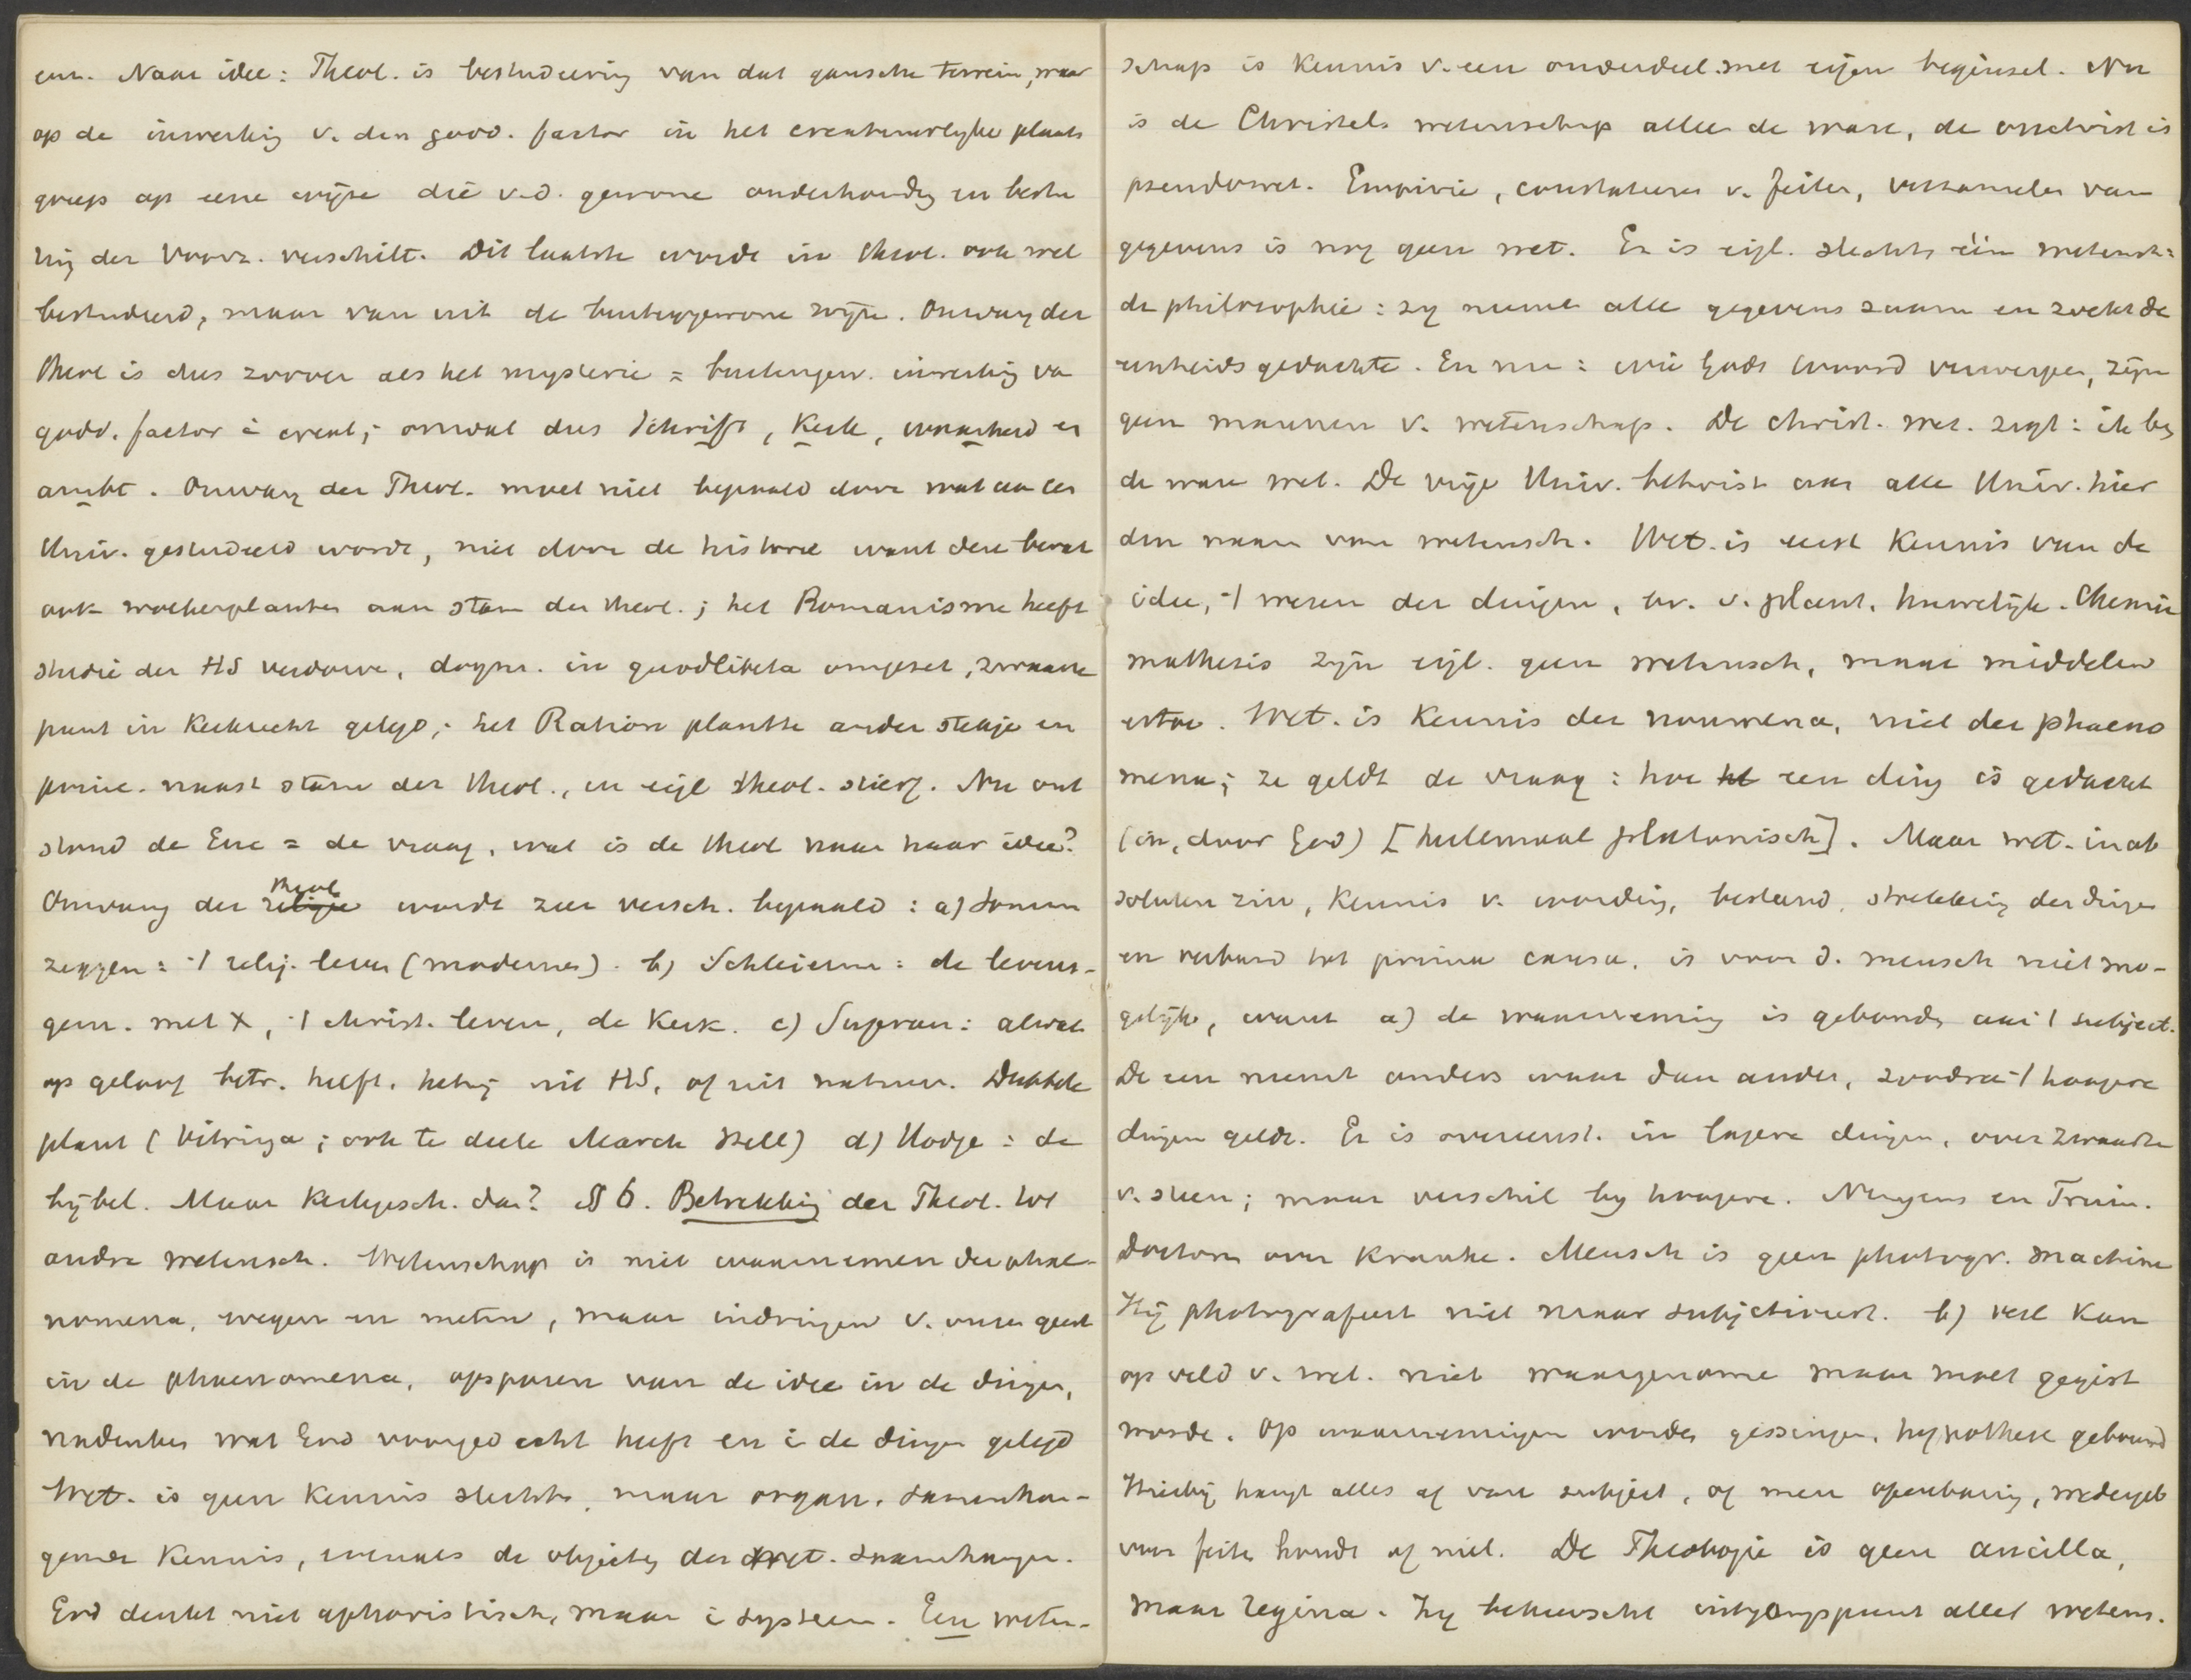 enz. Naar idee: Theol. is bestudeering van dat gansche terrein, waar
op de inwerking v. den godd. factor in het creatuurlyke plaats
greep op eene wijze die v.d. gewone onderhoudg en beste
ling der voorz. verschilt. Dit laatste wordt in theol. ook wel
bestudeerd, maar van uit de buitengewone wijze. Omvang der
theol is dus zoover als het mysterie = buitengew. inwerking va
godd. factor i creat; omvat dus Schrift, Kerk, waarheid en
ambt. Omvang der Theol. moet niet bepaald door wat aan een
Univ. gestudeerd wordt, niet door de historie want deze bevat
ook woekerplanten aan stam der theol.; het Romanisme heeft
studie der HS verdorve, dogm. in quodlibeta omgezet, zwaarte
punt in Kerkrecht gelegd; het Ration plantte ander stekje en
princ. naast stam der theol., en eigl theol. stierf. Nu ont
stond de Enc = de vraag, wat is de theol naar haar idee?
Omvang der religie theol wordt zeer versch. bepaald: a) Somm
zeggen: 't relig. leven (modernen). b) Schleierm: de levens-
gem. met X, 't christ. leven, de Kerk. c) Supran: alwat
op geloof betr. heeft, hetzij uit HS, of uit natuur. Dubbele
plant (Vitringa; ook te deele Marck zelf) d) Hodge: de
bijbel. Maar Kerkgesch. dan? § 6. Betrekking der Theol. tot
andre wetensch. Wetenschap is niet waarnemen der phae-
nomena, wegen en meten, maar indringen v. onzen geest
in de phaenomena, opsporen van de idee in de dingen,
nadenken wat God voorgedacht heeft en i de dingen gelegd
Wet. is geen kennis slechts, maar organ. samenhan-
gende kennis, evenals de objecten der wet. samenhangen.
God denkt niet aphoristisch, maar i systeem. Een weten-
schap is kennis v. een onderdeel met eigen beginsel. Nu
is de Christel. wetenschap alleen de ware, de onchrist is
pseudowet. Empirie, constateeren v. feiten, verzamelen van
gegevens is nog geen wet. Er is eigl. slechts één wetensch:
de philosophie: zy neemt alle gegevens zaam en zoekt de
eenheidsgedachte. En nu: wie Gods Woord verwerpen, zijn
geen mannen v. wetenschap. De christ. wet. zegt: ik ben
de ware wet. De vrije Univ. betwist aan alle Univ. hier
den naam van wetensch. Wet. is eerst kennis van de
idee, 't wezen der dingen, bv. v. plant, huwelijk. Chemie
mathesis zijn eigl. geen wetensch, maar middelen
ertoe. Wet. is Kennis der noumena, niet der phaeno
mena; ze geldt de vraag: hoe een ding is gedacht
(in, door God) [helemaal platonisch]. Maar wet. in ab
soluten zin, kennis v. wording, bestand, strekking der dingen
en verband tot prima causa, is voor d. mensch niet mo-
gelijk, want a) de waarneming is gebonden aan 't subject.
De een neemt anders waar dan ander, zoodra 't hoogere
dingen geldt. Er is overeenst. in lagere dingen, over zwaarte
v. steen; maar verschil by hoogere. Nergens en Fruin.
Doctoren over kranke. Mensch is geen photogr. machine
Hij photografeert niet maar subjectiveert. b) veel kan
op veld v. wet. niet waargenomen maar moet gegist
worde. Op waarnemingen worden gissingen, hypothese gebouwd
Hierbij hangt alles af van subject, of men openbaring, wedergeb
voor feiten houdt of niet. De Theologie is geen ancilla,
maar regina. Zy beheerscht uitgangspunt aller wetens.